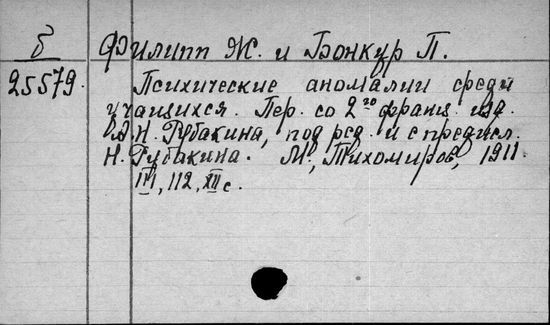 б Филипп Ж. и Бонкур П.
25579. Психические аномалии среди
учащихся. Пер. со 2го франц. изд.
А.Н. Рубакина, под ред. и с предисл.
Н. Рубакина. М., Тихомиров, 1911.
III, 112, XII с.